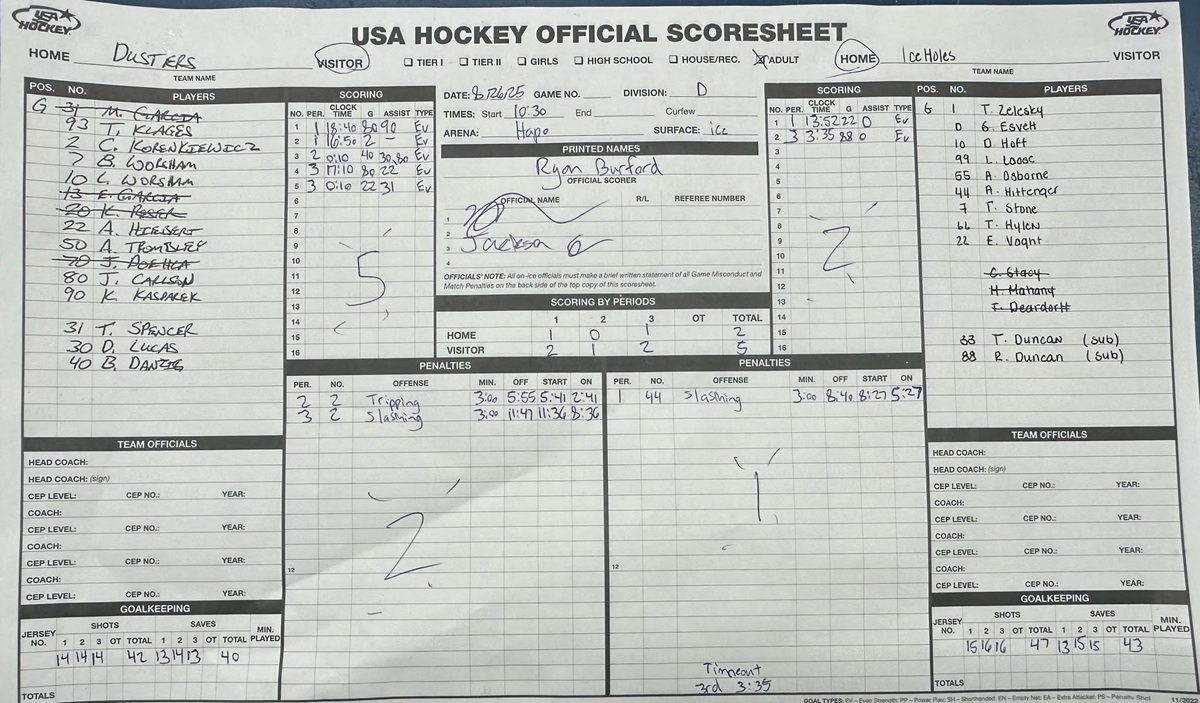 USA HOCKEY
USA HOCKEY OFFICIAL SCORESHEET
USA HOCKEY
HOME DUSTERS VISITOR
TEAM NAME
☐ TIER I ☐ TIER II ☐ GIRLS ☐ HIGH SCHOOL ☐ HOUSE/REC. ☒ ADULT
HOME IceHoles VISITOR
TEAM NAME
POS. NO. PLAYERS
G 31 M. GARCIA
93 T. KLAGES
2 C. KORENKIEWICZ
7 B. WORSHAM
10 L. WORSHAM
13 E. GARCIA
20 K.
22 A. HIEBERT
50 A. TROMBLEY
70 J.
80 J. CARLSON
90 K. KASPAREK
31 T. SPENCER
30 D. LUCAS
40 B. DANZIG
SCORING
NO. PER. CLOCK TIME G ASSIST TYPE
1 1 18:40 80 90 Ev
2 1 16:50 2 - Ev
3 2 0:10 40 30,80 Ev
4 3 17:10 80 22 Ev
5 3 0:16 22 31 Ev
6
7
8
9
10
11
12
13
14
15
16
5
DATE: 8/26/25 GAME NO. DIVISION: D
TIMES: Start 10:30 End Curfew
ARENA: Hapo SURFACE: ice
PRINTED NAMES
Ryan Burford
OFFICIAL SCORER
OFFICIAL NAME R/L REFEREE NUMBER
1
2
3 Jackson G
4
OFFICIALS' NOTE: All on-ice officials must make a brief written statement of all Game Misconduct and
Match Penalties on the back side of the top copy of this scoresheet.
SCORING BY PERIODS
1 2 3 OT TOTAL
HOME 1 0 1 2
VISITOR 2 1 2 5
SCORING
NO. PER. CLOCK TIME G ASSIST TYPE
1 1 13:52 22 0 Ev
2 3 3:35 88 0 Ev
3
4
5
6
7
8
9
10
11
12
13
14
15
16
2
POS. NO. PLAYERS
G 1 T. Zelesky
0 G. Esvelt
10 D. Hoft
99 L. Loosc
55 A. Osborne
44 A. Hittenger
7 T. Stone
66 T. Hylen
22 E. Voght
C. Stacy
H. Mahany
T. Deardorff
33 T. Duncan (sub)
88 R. Duncan (sub)
PENALTIES
PER. NO. OFFENSE MIN. OFF START ON
2 2 Tripping 3:00 5:55 5:41 2:41
3 2 Slashing 3:00 11:47 11:36 8:36
12
2
PENALTIES
PER. NO. OFFENSE MIN. OFF START ON
1 44 Slashing 3:00 8:40 8:27 5:27
12
1
Timeout
3rd 3:35
TEAM OFFICIALS
HEAD COACH:
HEAD COACH: (sign)
CEP LEVEL: CEP NO.: YEAR:
COACH:
CEP LEVEL: CEP NO.: YEAR:
COACH:
CEP LEVEL: CEP NO.: YEAR:
COACH:
CEP LEVEL: CEP NO.: YEAR:
GOALKEEPING
JERSEY NO. SHOTS SAVES MIN. PLAYED
1 2 3 OT TOTAL 1 2 3 OT TOTAL
14 14 14 42 13 14 13 40
TOTALS
TEAM OFFICIALS
HEAD COACH:
HEAD COACH: (sign)
CEP LEVEL: CEP NO.: YEAR:
COACH:
CEP LEVEL: CEP NO.: YEAR:
COACH:
CEP LEVEL: CEP NO.: YEAR:
COACH:
CEP LEVEL: CEP NO.: YEAR:
GOALKEEPING
JERSEY NO. SHOTS SAVES MIN. PLAYED
1 2 3 OT TOTAL 1 2 3 OT TOTAL
15 16 16 47 13 15 15 43
TOTALS
GOAL TYPES: EV – Even Strength; PP – Power Play; SH – Shorthanded; EN – Empty Net; EA – Extra Attacker; PS – Penalty Shot 11/2022